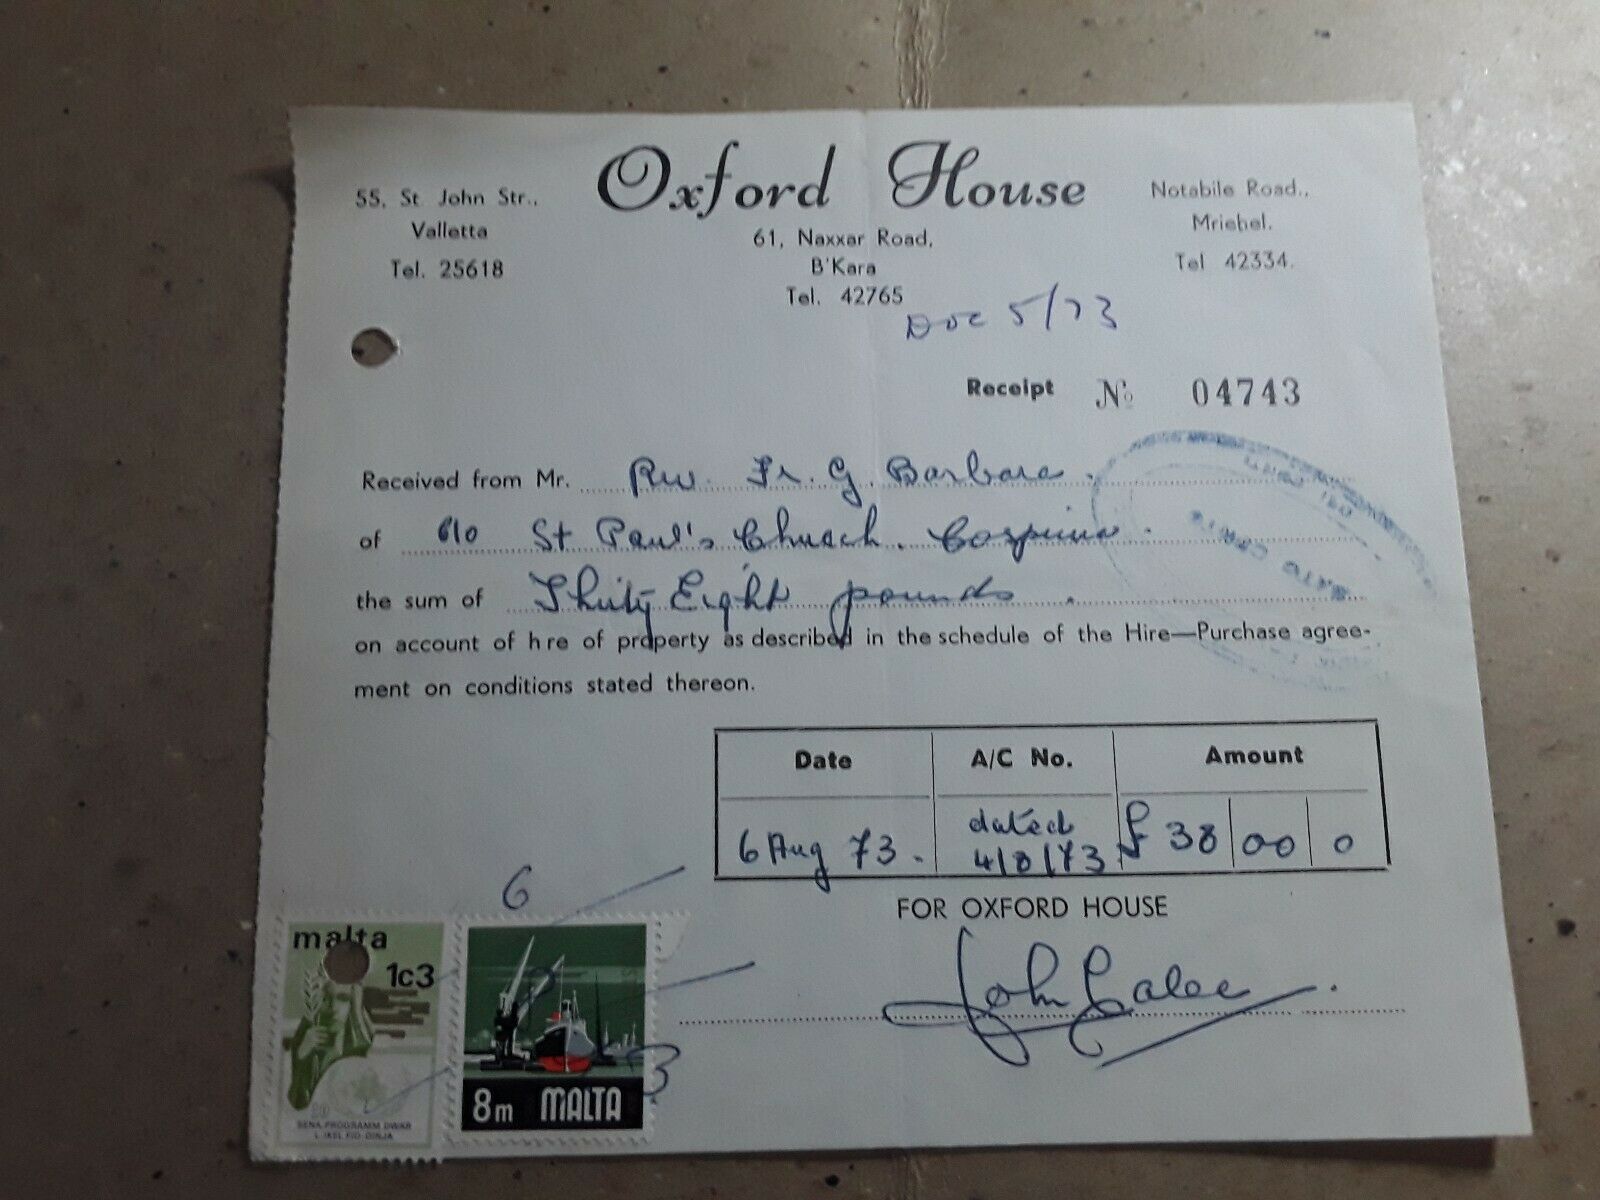 Oxford House
55, St. John Str.,
Valletta
Tel. 25618
61, Naxxar Road,
B'Kara
Tel. 42765
Notabile Road.,
Mriehel.
Tel 42334.
Doc 5/73
Receipt No 04743
Received from Mr. Rev. Fr. G. Barbara.
of c/o St Paul's Church. Cospicua.
the sum of Thirty Eight pounds.
on account of h re of property as described in the schedule of the Hire—Purchase agree-
ment on conditions stated thereon.
Date A/C No. Amount
6 Aug 73. dated 4/8/73 £ 38 00 0
FOR OXFORD HOUSE
John
6
8
73
malta
1c3
SENA PROGRAMM DWAR
L-IKEL FID-DINJA
8m MALTA